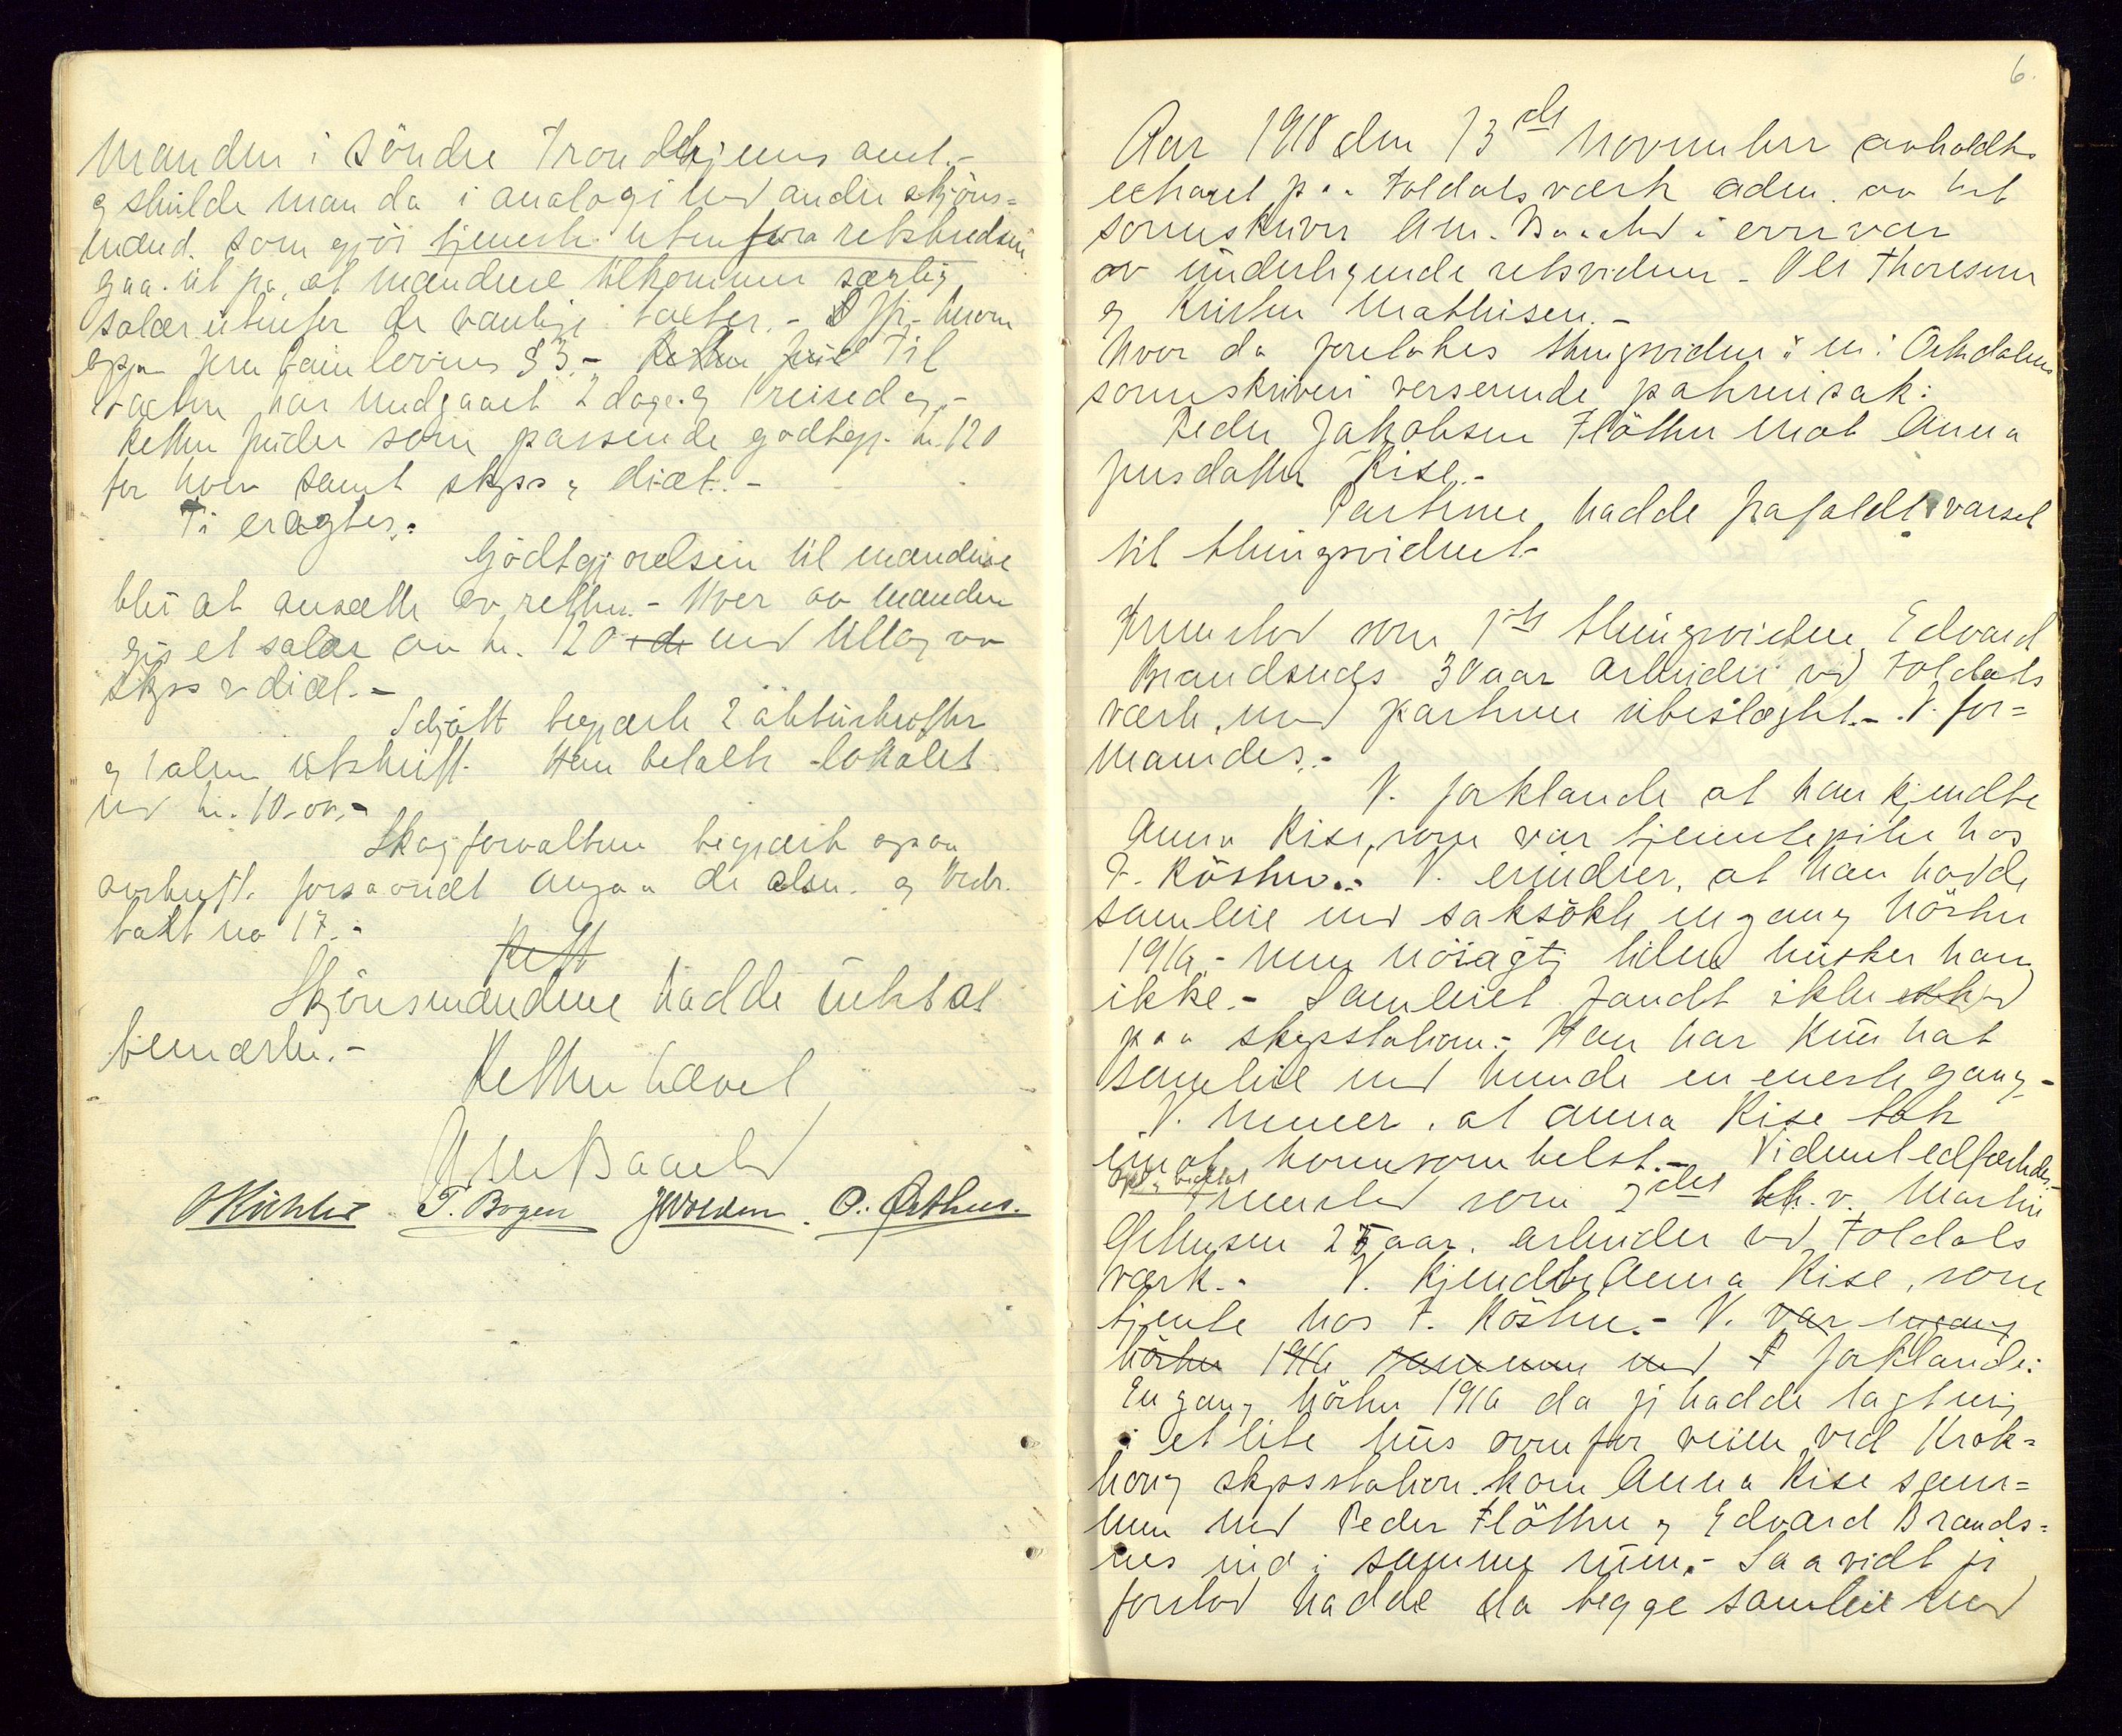 manden i Söndre Trondhjems amt.-
g skulde man da i analogi med andre skjöns=
mænd. som gjör tjeneste utenfora retskredsen
gaa ut pa, at mændene tilkommer særlig
salær utenfor de vanlige takster. -
§ 3.- Til
takten har medgaaet 2 dage. g 1 reisedag.-
Retten finder som passende godtgj. kr. 120
for hver samt skyss g diæt. -
Ti eragtes:
Godtgjörelsen til mændene
blir at ansætte av retten. - Hver av mændene
gis et salær av kr. 120 med tillæg av
skyss g diæt. -
Schjött begjærte 2 aktutskrifter
g 1 alm. utskrift. Han betalte lokalet
med kr. 10.00.-
Skogforvalteren begjærte ogsaa
avskrift forsaavidt angaar de alm. g vedr.
takt no 17.-
Rett
Skjönsmændene hadde intet at
bemærke.-
Retten hævet
Am Baarlid
O Kühler T. Bogen J Wolden. O. Østhus.
6.
Aar 1918 den 13de November avholdtes
extraret paa Foldals værk adm. av
sorenskriver Am. Baarlid i overvær
av underhgende retsvidner - Ole Thoresen
g Kristen Mathisen.-
Hvor da foretokes thingsvidne i en i Orkedalens
sorenskriveri verserende paternisak:
Peder Jakobsen Flötten mot Anna
Jensdatter Rise.-
Parterne hadde frafaldt varsel
til thingsvidnet.-
Fremstod som 1ste thingsvidne Edvard
Brandsnes 30 aar arbeider ved Foldals
værk, med parterne ubeslægtet.- V. for=
manedes.-
V. forklarede at han kjendte
Anna Rise, som var tjenestepike hos
F. Rösten.- V. erindrer, at han hadde
samleie med saksökte engang hösten
1916,- men nöiagtig tiden husker han
ikke.- Samleiet fandt ikke sted
paa skysstation.- Han har kun hat
samleie med hende en eneste gang.-
V. mener, at Anna Rise tok
imot hvemsomhelst.- Vidnet edfæstedes.-
Opl. g vedtat
Fremstod som 2det th. v. Martin
25 aar. arbeider ved Foldals
værk.- V. kjendte Anna Rise, som
tjente hos F. Rösten.- V. var engang
hösten 1916 sammen med P forklarede:
En gang hösten 1916 da jeg hadde lagt mig
i et lite hus ovenfor veien ved Krok=
haug skysstation kom Anna Rise sam=
men med Peder Flötten g Edvard Brands=
nes ind i samme rum.- Saavidt jeg
forstod hadde da begge samleie med